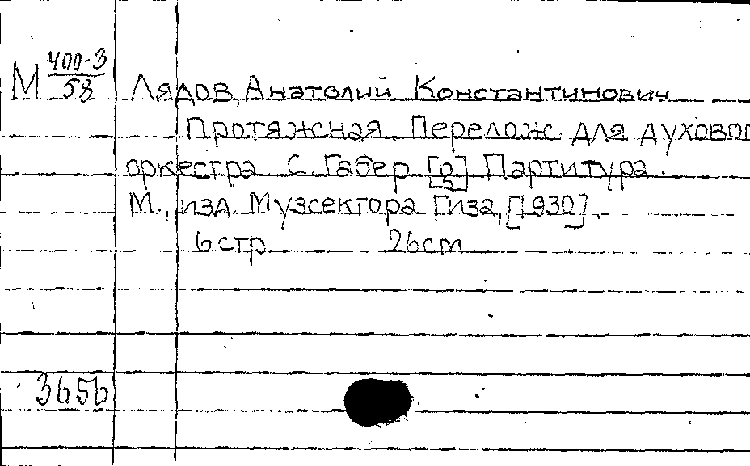 М 400-3/58 Лядов Анатолий Константинович
Протяжная. Перелож. для духового
оркестра С. Габер [о] Партитура.
М., изд. Музсектора Гиза, [1930].
6 стр. 26 cm
3656